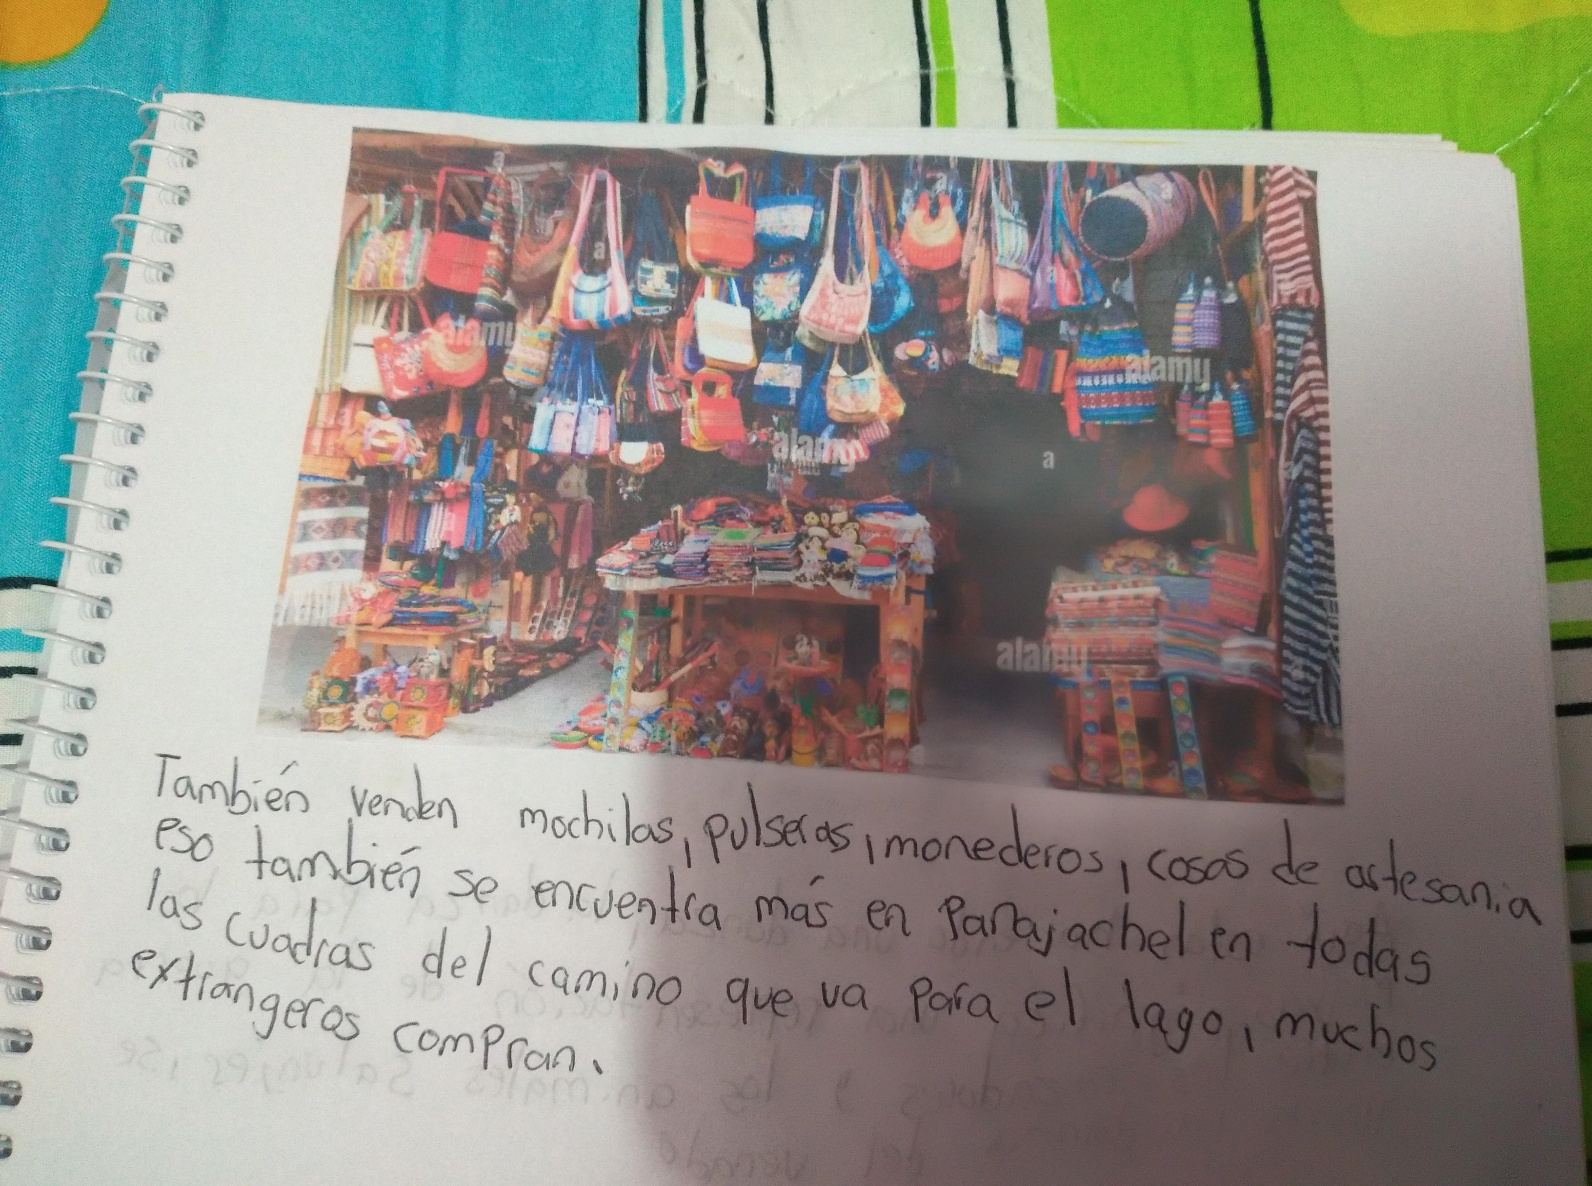 a
a
a
alamy
alamy
alamy
a
a
alamy
a
También venden mochilas, pulseras, monederos, cosas de artesania
eso también se encuentra más en Panajachel en todas
las cuadras del camino que va para el lago, muchos
extrangeros compran.